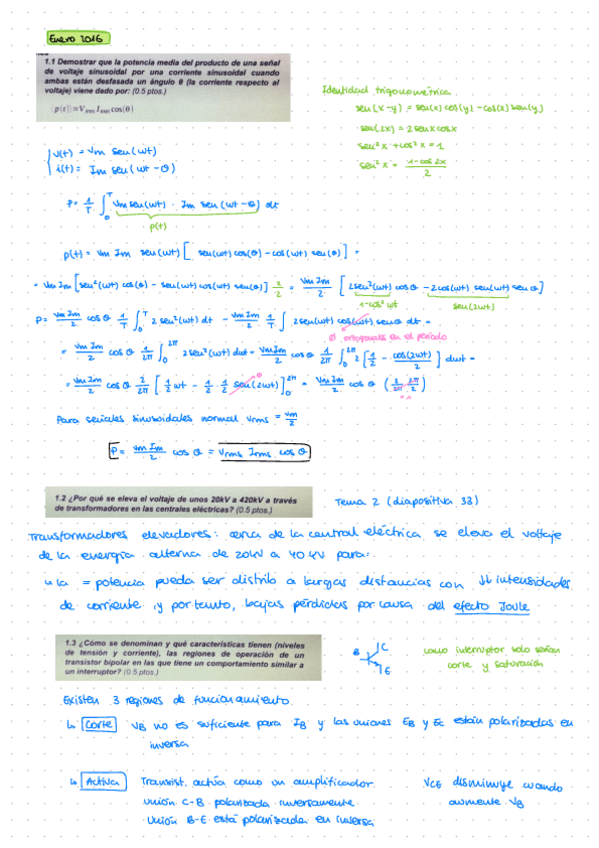 Enero 2016
1.1 Demostrar que la potencia media del producto de una señal
de voltaje sinusoidal por una corriente sinusoidal cuando
ambas están desfasada un ángulo θ (la corriente respecto al
voltaje) viene dado por: (0.5 ptos.)
⟨p(t)⟩=V_RMS I_RMS cos(θ)
Identidad trigonométrica.
sen(x-y) = sen(x) cos(y) - cos(x) sen(y)
sen(2x) = 2 senx cosx
sen² x + cos² x = 1
sen² x = (1-cos 2x)/2
v(t) = Vm sen(wt)
i(t) = Im sen(wt-θ)
P = 1/T ∫₀ᵀ Vm sen(wt) · Im sen(wt-θ) dt
p(t)
p(t) = Vm Im sen(wt) [ sen(wt) cos(θ) - cos(wt) sen(θ) ] =
= Vm Im [sen²(wt) cos(θ) - sen(wt) cos(wt) sen(θ)] 2/2 = Vm Im/2 [ 2sen²(wt) cos θ - 2cos(wt) sen(wt) sen θ ]
1-cos² wt sen(2wt)
P = Vm Im/2 cos θ 1/T ∫₀ᵀ 2 sen²(wt) dt - Vm Im/2 1/T ∫ 2sen(wt) cos(wt) sen θ dt =
0 ortogonales en el período
= Vm Im/2 cos θ 1/2π ∫₀²π 2sen²(wt) dwt = Vm Im/2 cos θ 1/2π ∫₀²π 2 [1/2 - cos(2wt)/2] dwt =
= Vm Im/2 cos θ 2/2π [ 1/2 wt - 1/2 · 1/2 sen(2wt) ]₀²π = Vm Im/2 cos θ (2/2π · 2π/2)
0
= 1
Para señales sinusoidales normal Vrms = Vm/2
P = Vm Im/2 cos θ = Vrms Irms cos θ
1.2 ¿Por qué se eleva el voltaje de unos 20kV a 420kV a través
de transformadores en las centrales eléctricas? (0.5 ptos.)
Tema 2 (diapositiva 33)
Transformadores elevadores: cerca de la central eléctrica se eleva el voltaje
de la energía alterna de 20kV a 40 kV para:
la = potencia pueda ser distrib a largas distancias con ↓↓ intensidades
de corriente y por tanto, bajas pérdidas por causa del efecto Joule
1.3 ¿Cómo se denominan y qué características tienen (niveles
de tensión y corriente), las regiones de operación de un
transistor bipolar en las que tiene un comportamiento similar a
un interruptor? (0.5 ptos.)
B
C
E
como interruptor solo serían
corte y saturación
Existen 3 regiones de funcionamiento
↳ Corte VB no es suficiente para IB y las uniones EB y EC están polarizadas en
inversa
↳ Activa Transist. actúa como un amplificador
unión C-B polarizada inversamente
Unión B-E está polarizada en inversa
VCE disminuye cuando
aumente VB